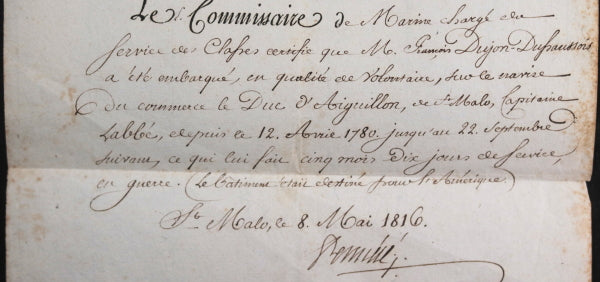 Le S. Commissaire de Marine chargé du
Service des Classes certifie que M. François Dujon-Dufaussois
a été embarqué, en qualité de Volontaire, sur le navire
du commerce le Duc d'Aiguillon, de St. Malo, Capitaine
Labbé, depuis le 12. Avril 1780. jusqu'au 22. Septembre
suivant, ce qui lui fait cinq mois dix jours de service,
en guerre. (Le bâtiment était destiné pour l'Amérique.)
St. Malo, le 8. Mai 1816.